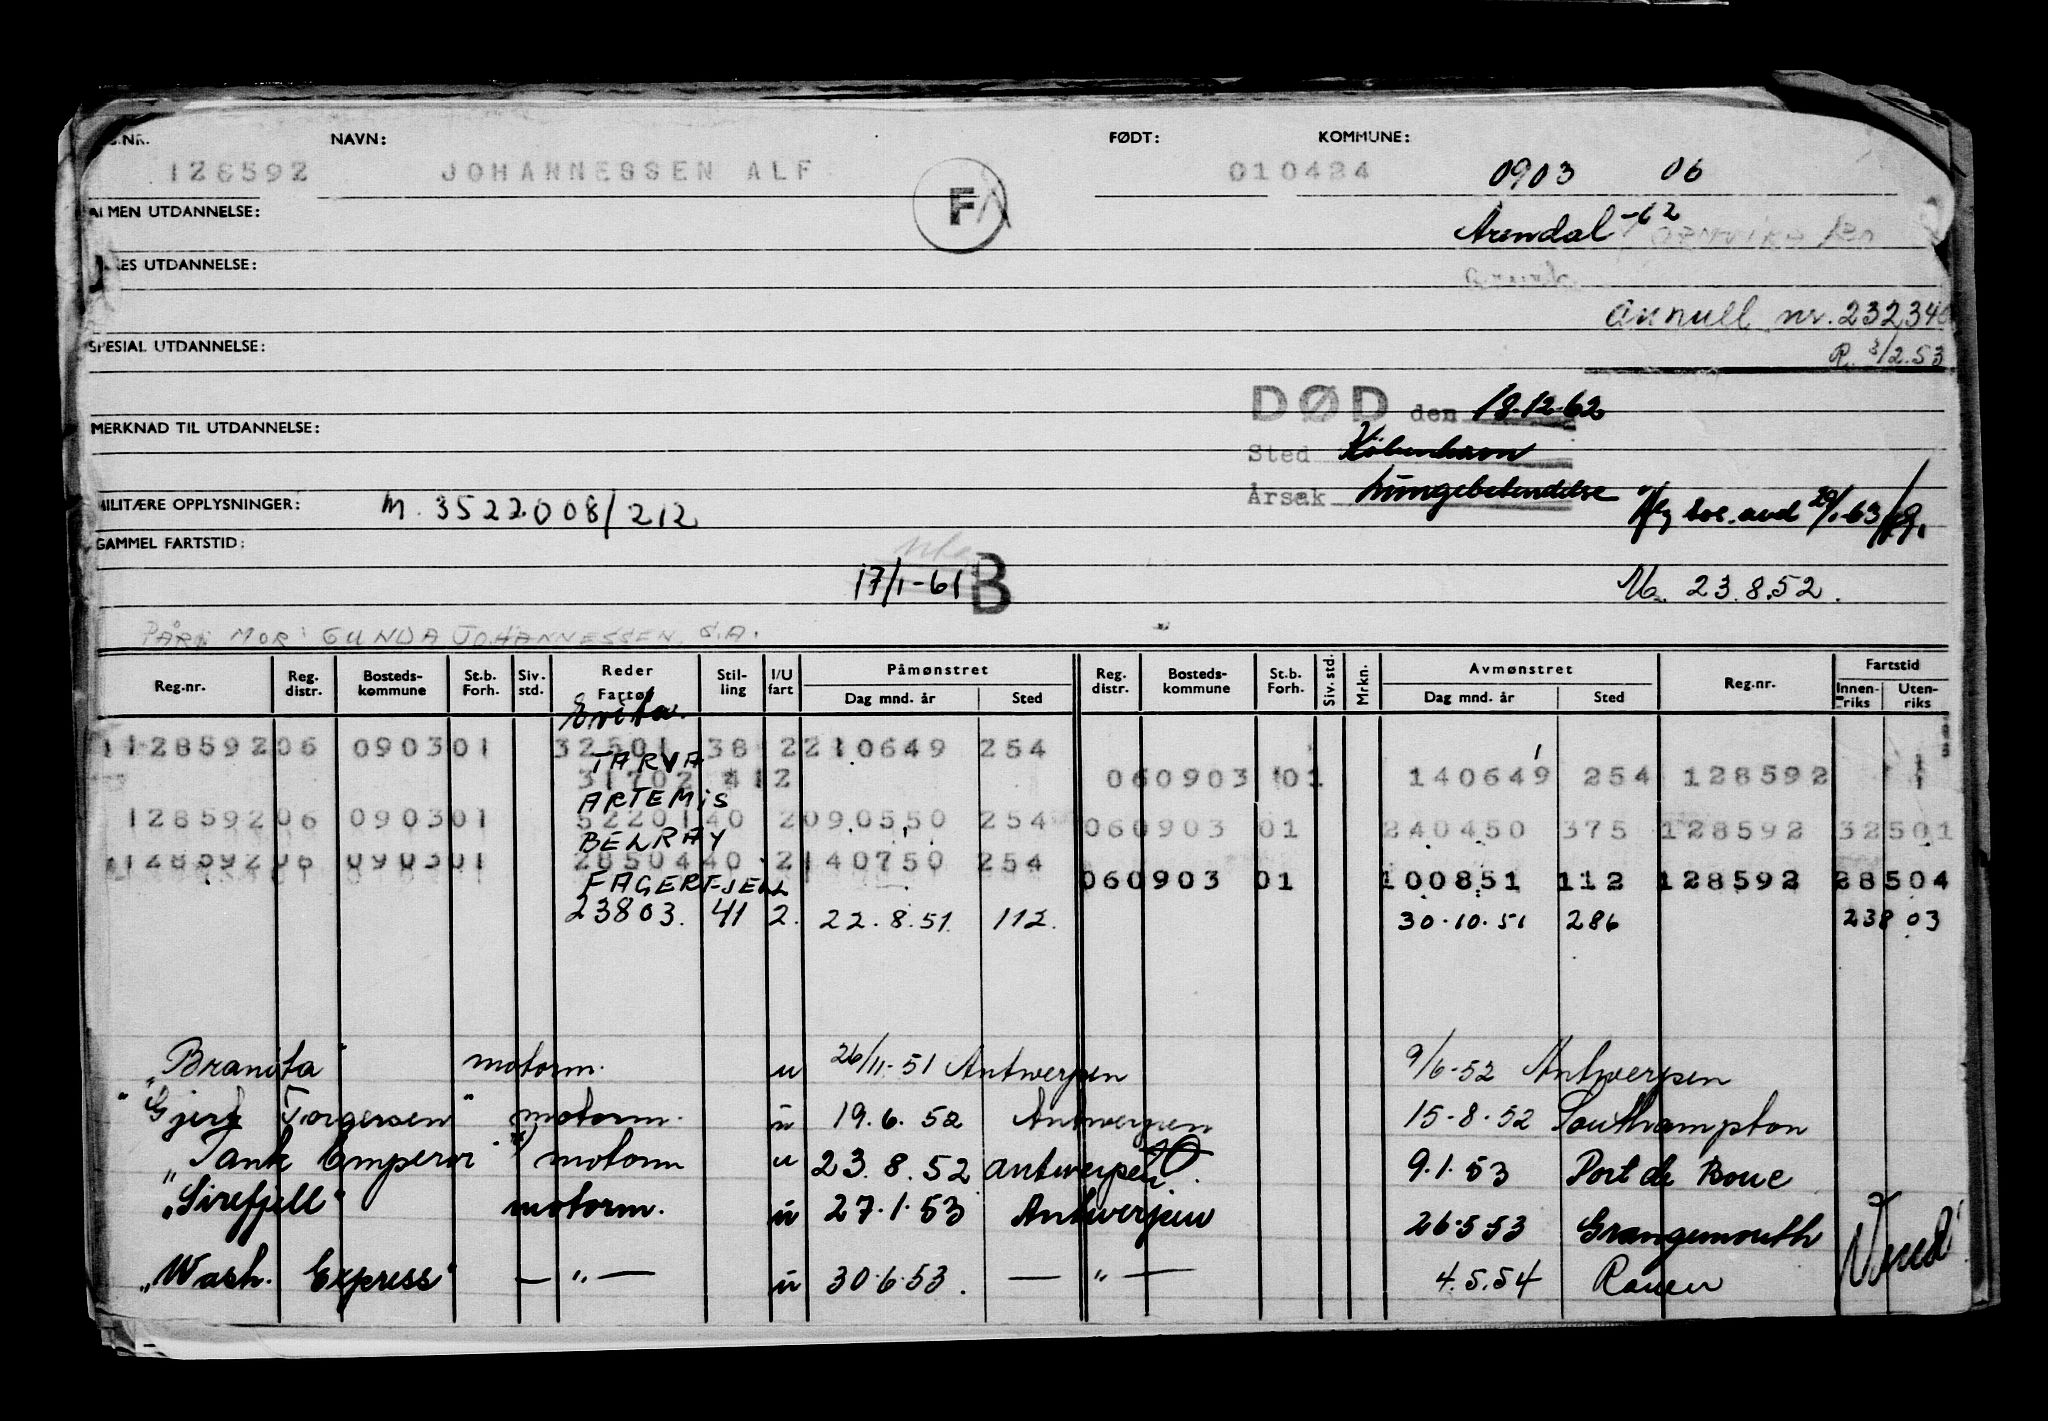 NR. NAVN: FØDT: KOMMUNE:
128592 JOHANNESSEN ALF FA 010424 0903 06
ALMEN UTDANNELSE: Arendal -62
UTDANNELSE:
Annull nr. 232340
SPESIAL UTDANNELSE: R. 3/2.53
DØD den 18.12.62
MERKNAD TIL UTDANNELSE:
Sted København
Årsak lungebetendelse
MILITÆRE OPPLYSNINGER: M. 3522008/212 soc. avd 29/1-63
GAMMEL FARTSTID:
17/1-61 B M. 23.8.52.
PÅRØ MOR: GUNDA JOHANNESSEN, S.A.
Reg.nr. Reg. distr. Bosteds-kommune St.b. Forh. Siv. std. Reder Fartøy Stil-ling I/U fart Påmønstret Dag mnd. år Sted Reg. distr. Bosteds-kommune St.b. Forh. Siv. std. Mrkn. Avmønstret Dag mnd. år Sted Reg.nr. Fartstid Innen-riks Uten-riks
Evita
128592 06 0903 01 32501 38 2 210649 254
TARVA
31702 41 2 06 0903 01 140649 254 128592
ARTEMIS
128592 06 0903 01 52201 40 2 090550 254 06 0903 01 240450 375 128592 32501
BELRAY
128592 06 0903 01 28504 40 2 140750 254 06 0903 01 100851 112 128592 28504
FAGERFJELL
23803. 41 2. 22.8.51. 112. 30.10.51 286 238 03
"Branita" motorm. u 26/11-51 Antwerpen 9/6-52 Antwerpen
"Gjert Torgersen" motorm. u 19.6.52 Antwerpen 15-8-52 Southampton
"Tank Emperor" motorm u 23.8.52 Antwerpen 9.1.53 Port de Bouc
"Sirefjell" motorm. u 27.1.53 Antwerpen 26.5.53 Grangemouth
"Wash. Express" — " — u 30.6.53. — " — 4.5.54 Rouen
Vend